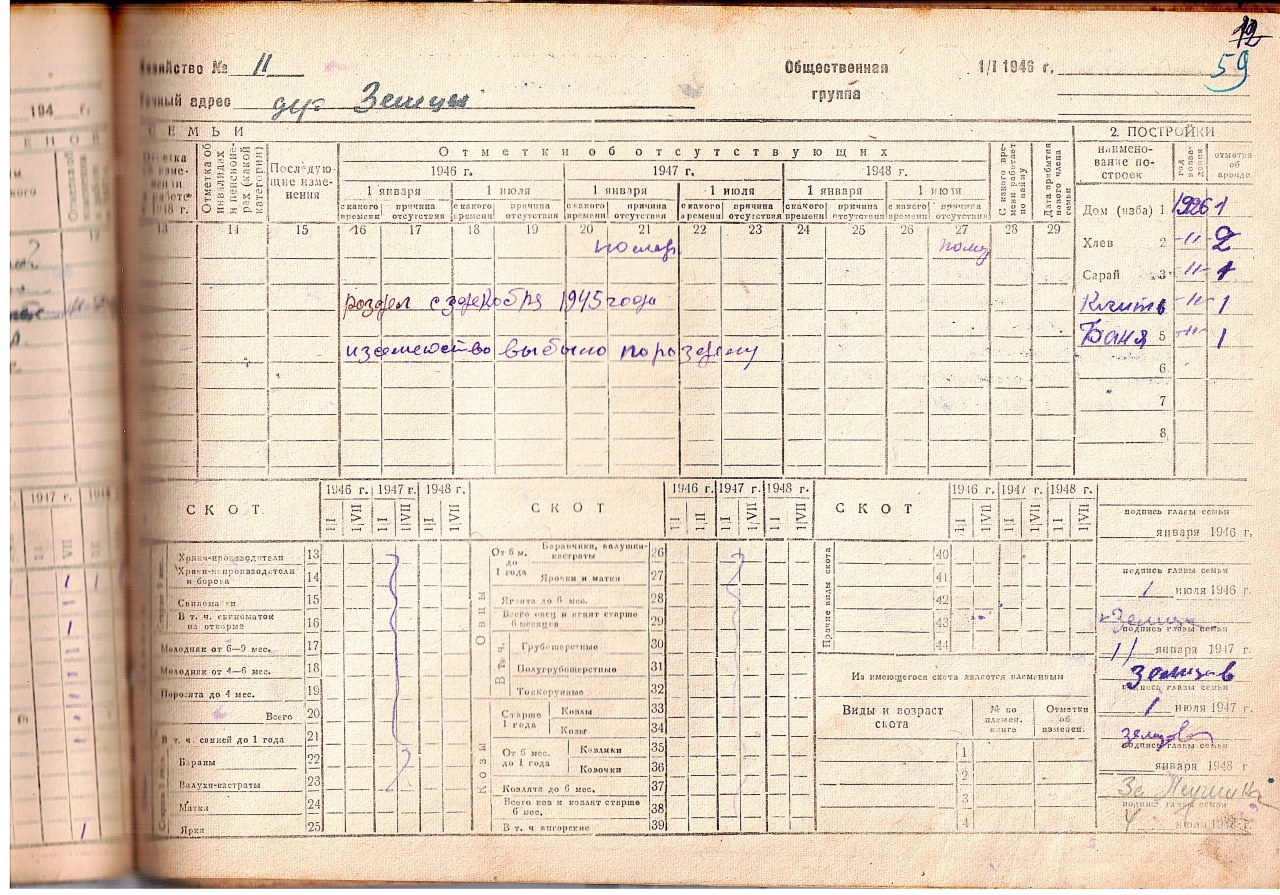 12
59
Хозяйство № 11
Общественная группа
1/I 1946 г.
Точный адрес дер. Земцы
194 г.
СЕМЬИ
2. ПОСТРОЙКИ
Отметка об инвалидах и пенсионерах (какой категории)
Последующие изменения
Отметки об отсутствующих
1946 г. 1947 г. 1948 г.
1 января 1 июля 1 января 1 июля 1 января 1 июля
с какого времени причина отсутствия с какого времени причина отсутствия с какого времени причина отсутствия с какого времени причина отсутствия с какого времени причина отсутствия с какого времени причина отсутствия
С какого времени работает по найму
Дата прибытия нового члена семьи
наимено-вание по-строек
год возве-дения
отметка об аренде
13 14 15 16 17 18 19 20 21 22 23 24 25 26 27 28 29
Дом (изба) 1 1926 1
Хлев 2 -"- 2
Сарай 3 -"- 1
раздел с декабря 1945 года
Клеть -"- 1
Баня 5 -"- 1
выбыло по разделу
6
7
8
1947 г.
СКОТ 1946 г. 1947 г. 1948 г.
1|I 1|VII 1|I 1|VII 1|I 1|VII
Хряки-производители 13
Хряки-непроизводители и борова 14
Свиноматки 15
В т. ч. свиноматок на откорме 16
Молодняк от 6—9 мес. 17
Молодняк от 4—6 мес. 18
Поросята до 4 мес. 19
Всего 20
В т. ч. свиней до 1 года 21
Бараны 22
Валухи-кастраты 23
Матки 24
Ярки 25
СКОТ 1946 г. 1947 г. 1948 г.
1|I 1|II 1|I 1|VII 1|I 1|VII
Овцы
От 6 м. до 1 года
Баранчики, валушки-кастраты 26
Ярочки и матки 27
Ягнята до 6 мес. 28
Всего овец и ягнят старше 6 месяцев 29
В т. ч.
Грубошерстные 30
Полугрубошерстные 31
Тонкорунные 32
Козы
Старше 1 года
Козлы 33
Козы 34
От 6 мес. до 1 года
Козлики 35
Козочки 36
Козлята до 6 мес. 37
Всего коз и козлят старше 6 мес. 38
В т. ч. ангорские 39
СКОТ 1946 г. 1947 г. 1948 г.
1|I 1|VII 1|I 1|VII 1|I 1|VII
Прочие виды скота
40
41
42
43
44
Из имеющегося скота является племенным
Виды и возраст скота
№ по племен. книге
Отметки об изменен.
1
2
3
4
подпись главы семьи
января 1946 г.
подпись главы семьи
1 июля 1946 г.
подпись главы семьи
января 1947 г.
Земцов
подпись главы семьи
1 июля 1947 г.
Земцов
подпись главы семьи
января 1948 г.
подпись главы семьи
июля 1948 г.